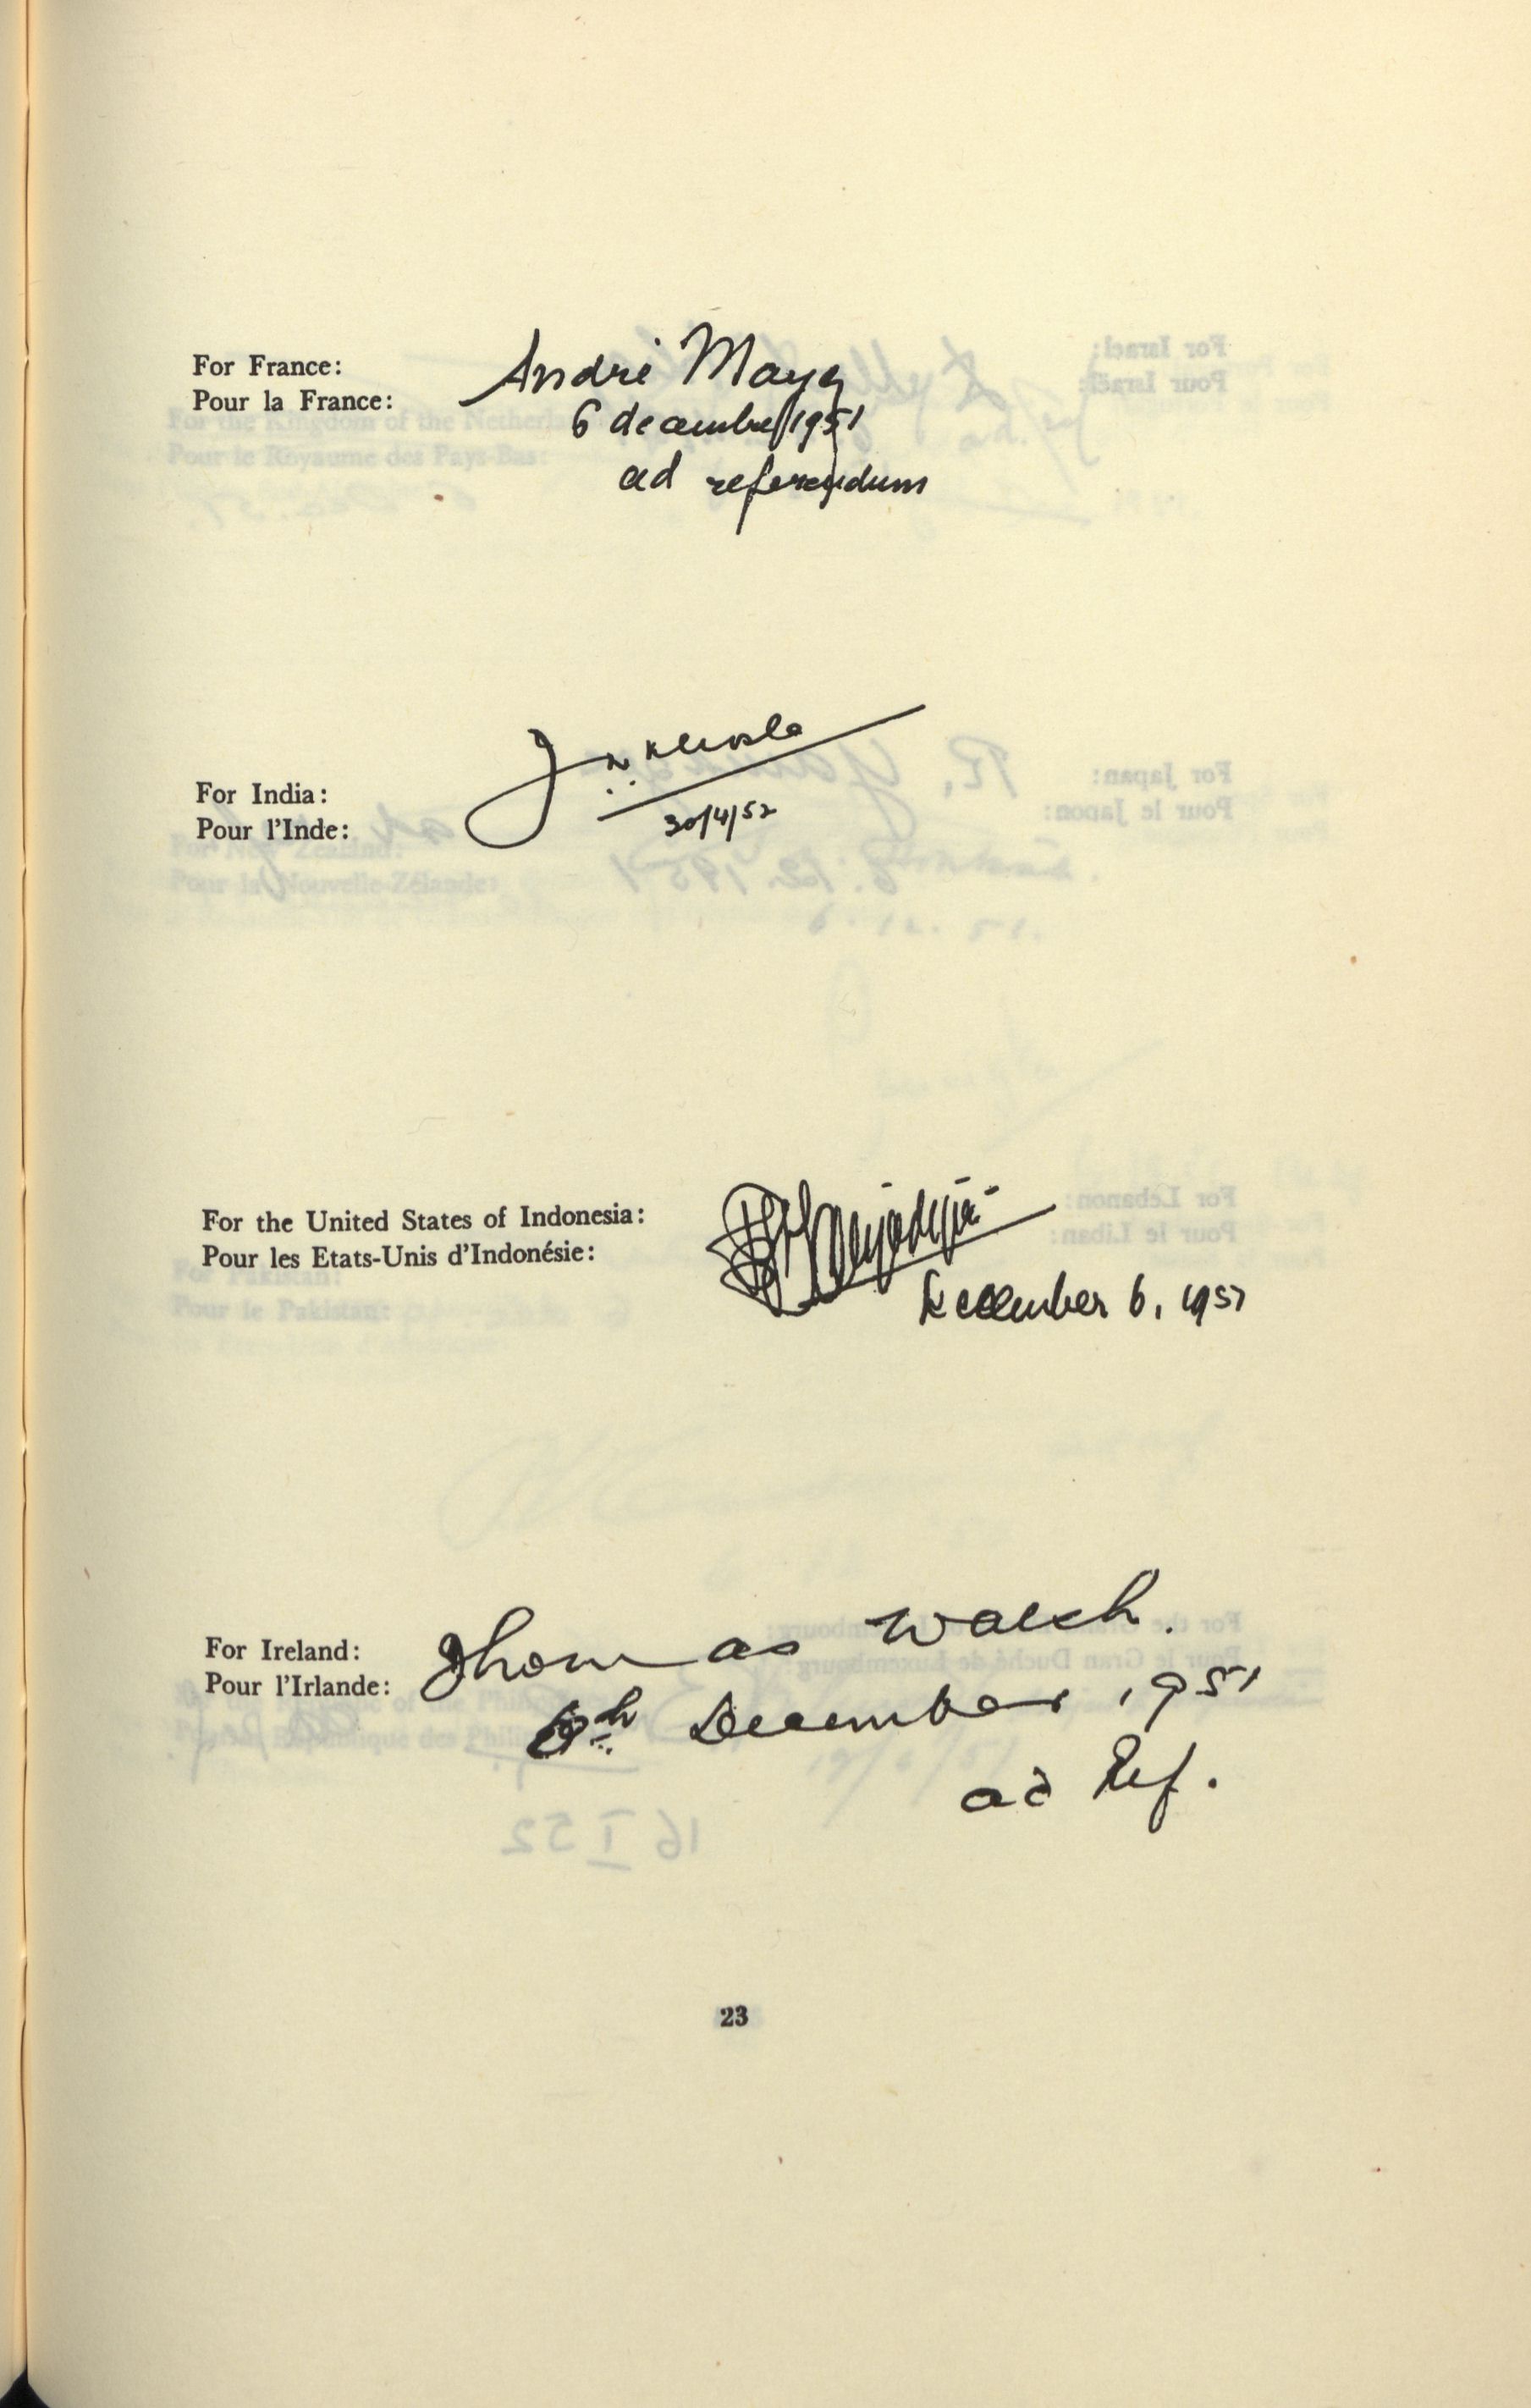 For France:
Pour la France:
André Mayer
6 decembre 1951
ad referendum
For India:
Pour l'Inde:
30/4/52
For the United States of Indonesia:
Pour les Etats-Unis d'Indonésie:
December 6, 1951
For Ireland:
Pour l'Irlande:
Thomas Walsh.
6th December 1951
ad Ref.
23